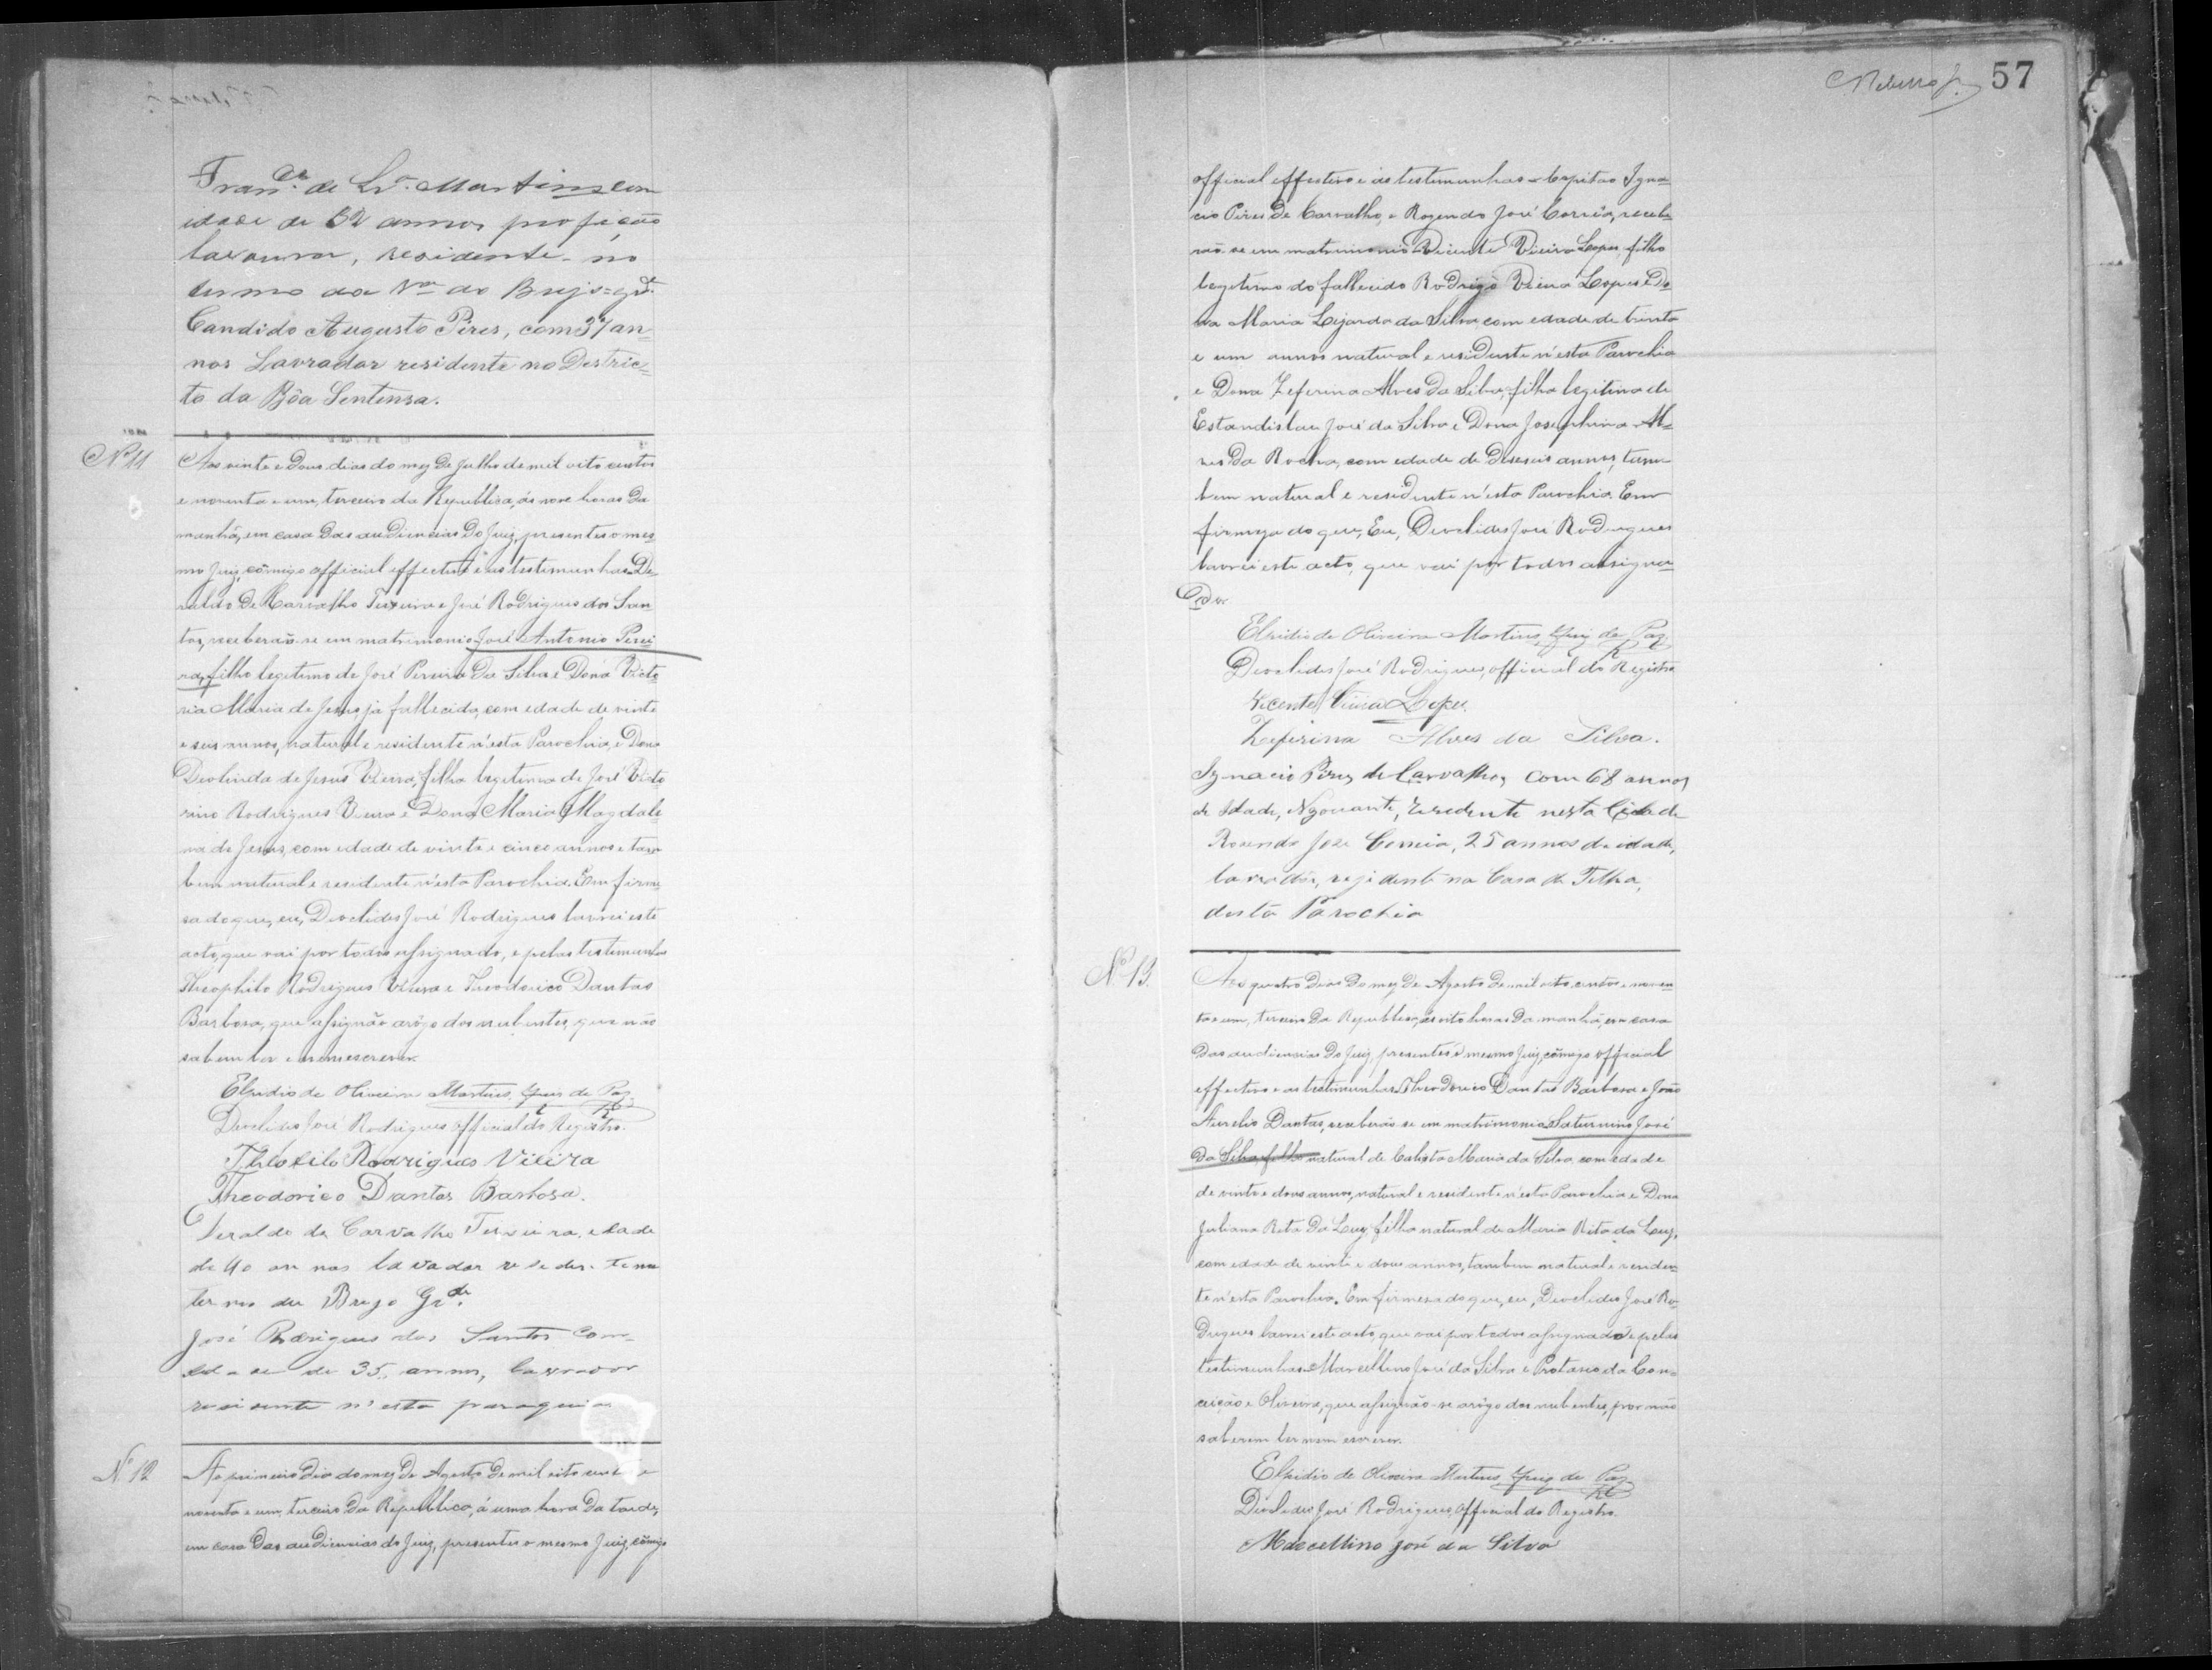 Fran.ca de Lr.a Martins com
idade de 52 annos profição
lavoura, residente no
termo da V.a do Brejo-gd.e
Candido Augusto Pires, com 37 an=
nos Lavrador residente no Destric=
to da Bôa Sentensa.
Nº 11
Aos vinte e dous dias do mez de Julho de mil oito centos
e noventa e um, terceiro da Republica, ás nove horas da
manhã, em casa das audiencias do Juiz, presentes o mes=
mo Juiz, cômigo official effectivo e as testimunhas De=
raldo de Carvalho Teixeira e José Rodrigues dos San=
tos, receberão-se em matrimonio José Antonio Perei=
ra, filho legitimo de José Pereira da Silva e Dona Victo
ria Maria de Jesus, já fallecida, com edade de vinte
e seis annos, natural e residente n'esta Parochia, e Dona
Deolinda de Jesus Vieira, filha legitima de José Victo
rino Rodrigues Vieira e Dona Maria Magdale=
na de Jesus, com edade de vinte e cinco annos e tam
bem natural e residente n'esta Parochia. Em firme
sa do que, eu, Deoclides José Rodrigues lavrei este
acto, que vai por todos assignado, e pelas testimunhas
Theophilo Rodrigues Vieira e Theodorico Dantas
Barbosa, que assignão arôgo dos nubentes, que não
sabem ler e nem escrever.
Elpidio de Oliveira Martins, Juiz de Paz
Deoclides José Rodrigues official do Registro.
Theofilo Rodrigues Vieira
Theodorico Dantas Barbosa.
Deraldo de Carvalho Teixeira, edade
de 40 annos lavador resedente no
termo do Brejo Gr.de
José Rodrigues dos Santos com=
edade de 35, annos, lavrador
residente n'esta paraquia
Nº 12
Ao primeiro dia do mez de Agosto de mil oito centos e
noventa e um, terceiro da Republica, á uma hora da tarde,
em casa das audiencias do Juiz, presentes o mesmo Juiz, cômigo
57
official effectivo e as testimunhas Capitão Igna=
cio Pires de Carvalho, e Rozendo José Corrêa, recebe
rão-se em matrimonio Vicente Vieira Lopes, filho
legitimo do fallecido Rodrigo Vieira Lopes e Do
na Maria Lizarda da Silva, com edade de trinta
e um annos natural e residente n'esta Parochia
e Dona Zeferina Alves da Silva, filha legitima de
Estandislau José da Silva e Dona Josephina Al=
ves da Rocha, com edade de deseseis annos, tam=
bem natural e residente n'esta Parochia. Em
firmeza do que, Eu, Deoclides José Rodrigues
lavrei este acto, que vai por todos assigna=
do.
Elpidio de Oliveira Martins, Juiz de Paz
Deoclides José Rodrigues, official do Registro
Vicente Vieira Lopes.
Zeferina Alves da Silva.
Ignacio Pires de Carvalho, com 68 annos
de Idade, Ngociante, Resedente nesta Cidade
Rosendo José Correia, 25 annos de idade,
lavradôr, rezidente na Casa de Telha,
desta Parochia
Nº 13.
Aos quatro dias do mez de Agosto de mil oito centos e noven
ta e um, terceiro da Republica, ás oito horas da manhã, em casa
das audiencias do Juiz, presentes o mesmo Juiz, cômigo official
effectivo e as testimunhas Theodorico Dantas Barbosa e João
Aurelio Dantas, receberão-se em matrimonio Saturnino José
da Silva, filho natural de Calista Maria da Silva, com edade
de vinte e dous annos, natural e residente n'esta Parochia e Dona
Juliana Rita da Luz, filha natural de Maria Rita da Luz,
com edade de vinte e dous annos, tambem natural e residen=
te n'esta Parochia. Em firmesa do que, eu, Deoclides José Ro=
drigues lavrei este acto, que vai por todos assignado e pelas
testimunhas Marcellino José da Silva e Protasio da Con=
ceição e Oliveira, que assignão-se arôgo dos nubentes, por não
saberem ler nem escrever.
Elpidio de Oliveira Martins, Juiz de Paz
Deoclides José Rodrigues, official do Registro.
Marcellino José da Silva